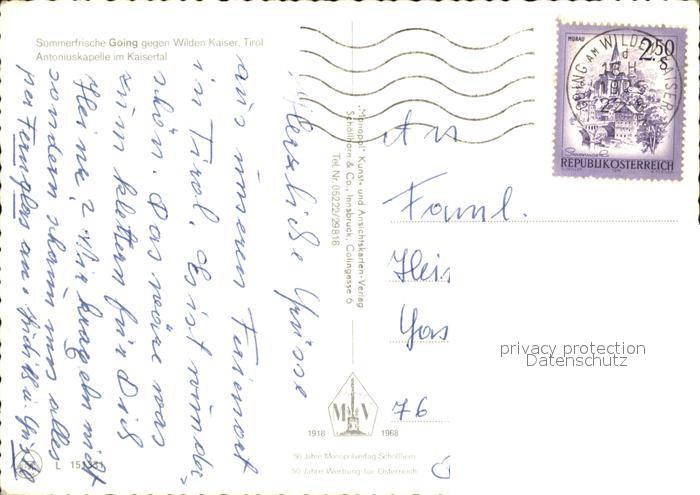 Sommerfrische Going gegen Wilden Kaiser, Tirol
Antoniuskapelle im Kaisertal
Herzliche Grüsse
aus unserem Ferienort
in Tirol. Es ist
schön. Das wäre was
zum klettern für Dich
Heinz, wir kraxeln nicht
sondern schauen uns alles
per Fernglas an.
"Monopol" Kunst- und Ansichtskarten-Verlag
Schöllhorn & Co., Innsbruck, Colingasse 6
Tel. Nr. (05222)29816
MURAU
2.50
S
REPUBLIK ÖSTERREICH
GOING AM WILDEN KAISER
An
Faml.
Hei
76
privacy protection
Datenschutz
M V
1918 1968
50 Jahre Monopolverlag Schöllhorn
50 Jahre Werbung für Österreich